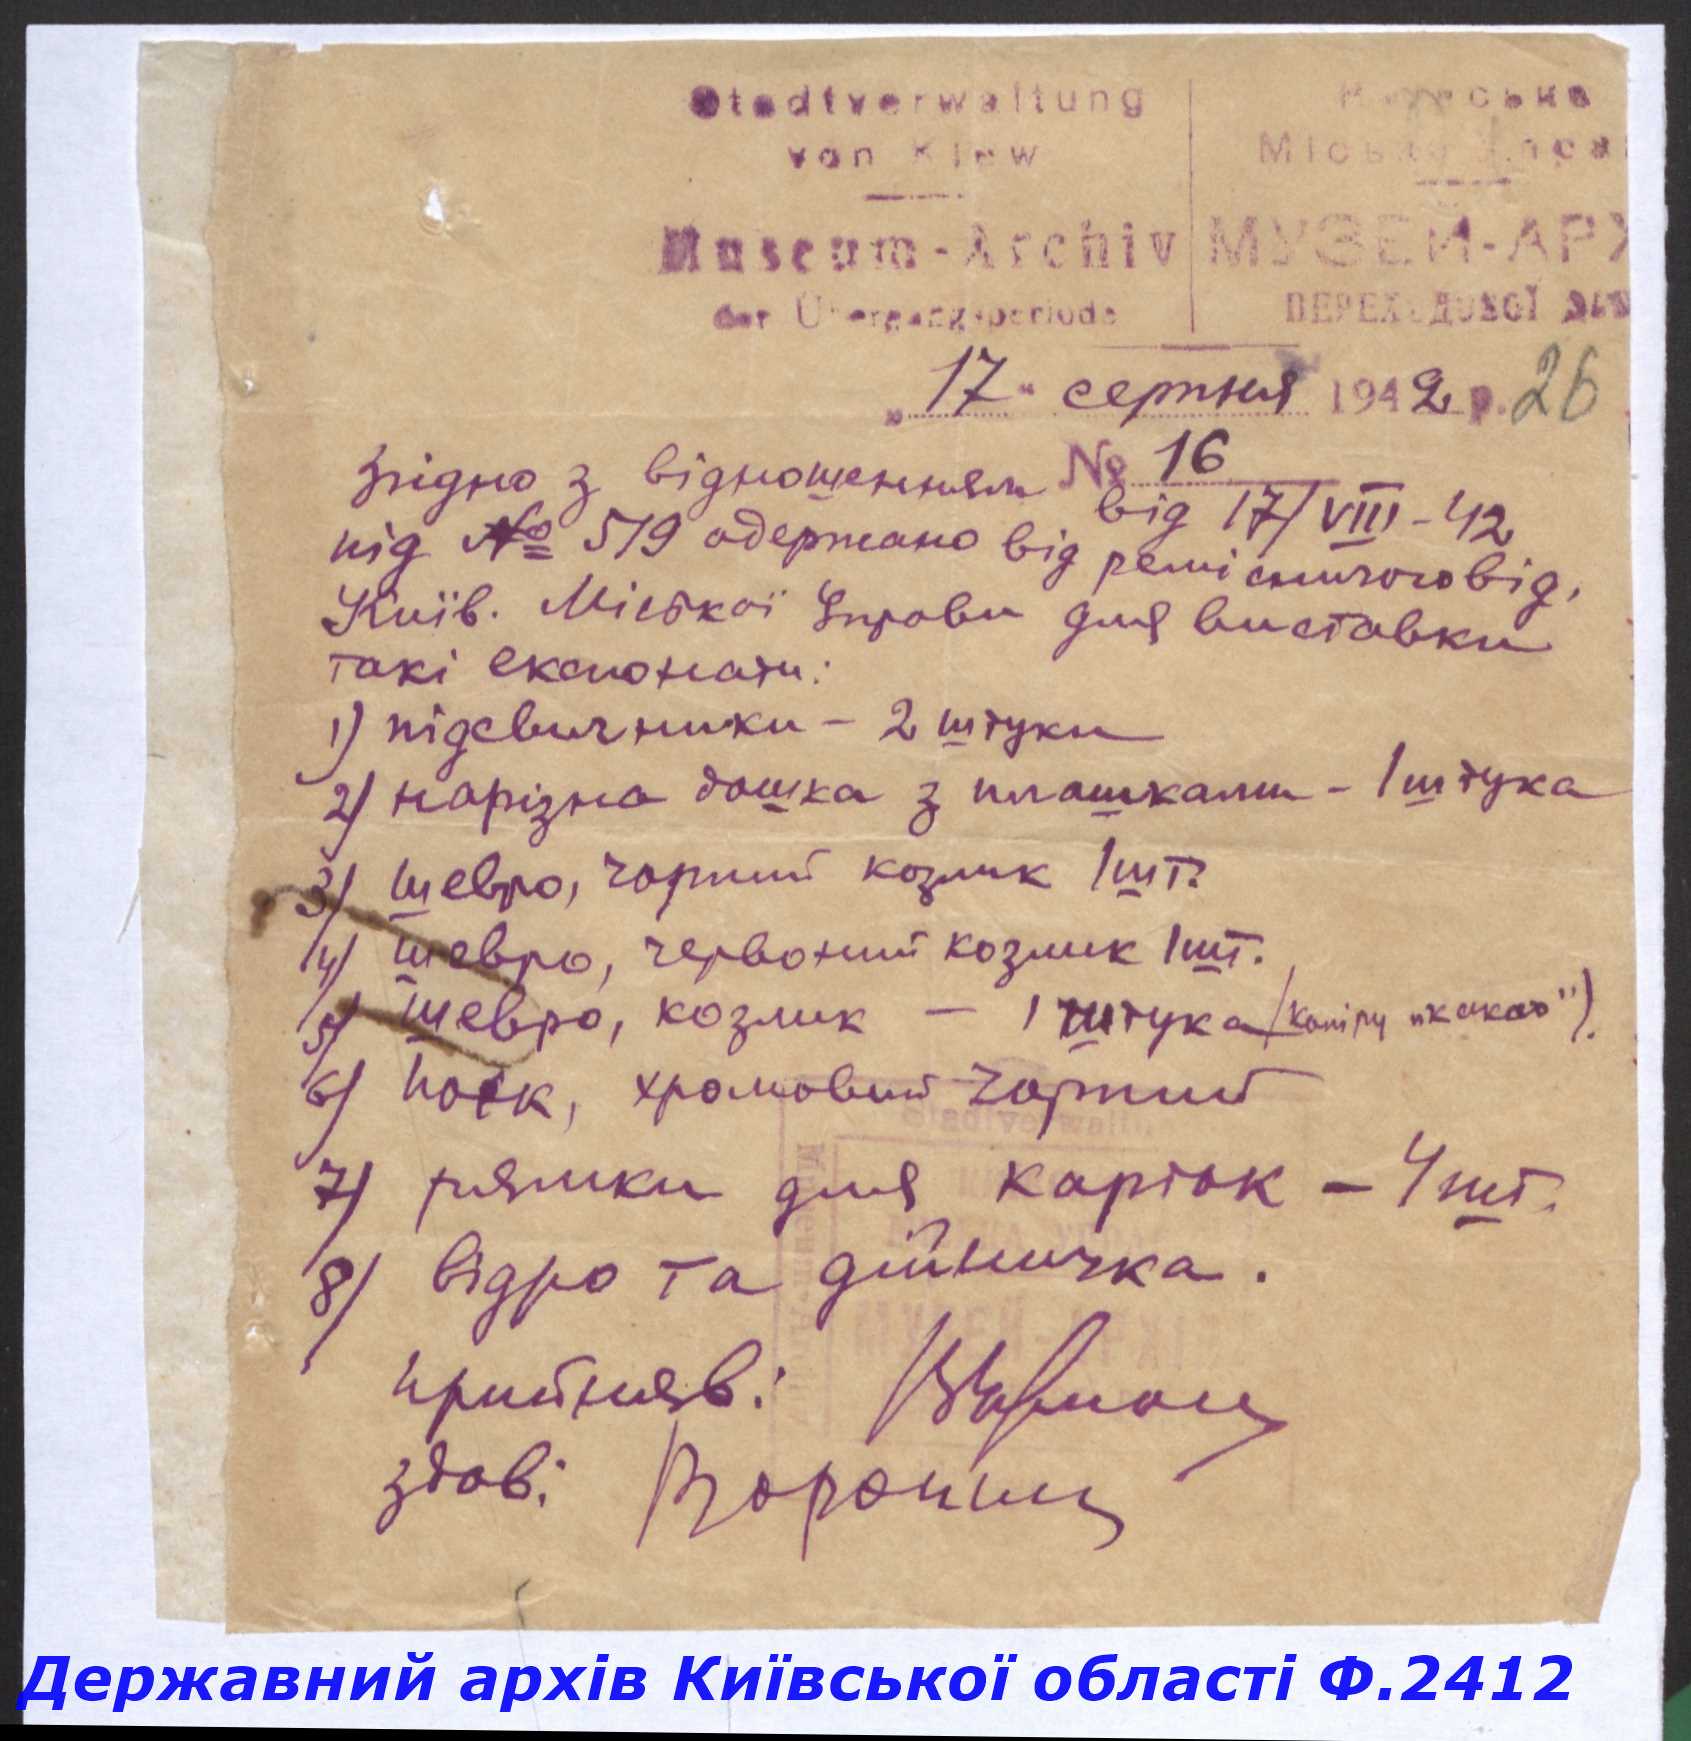 Stadtverwaltung
von Kiew
Museum-Archiv
der Übergangsperiode
Київська
Міська Управ
МУЗЕЙ-АРХ
ПЕРЕХОДОВОЇ
„17" серпня 1942 р. 26
№ 16
Згідно з відношенням від 17/VIII-42
під № 519 одержано від ремісничого від.
Київ. Міської Управи для виставки
такі експонати:
1) підсвичники – 2 штуки
2) нарізна дошка з плашками – 1 штука
3) шевро, чорний козлик 1 шт.
4) шевро, червоний козлик 1 шт.
5) шевро, козлик – 1 штука (коліру „какао").
6) поск, хромовий чорний
7) рямки для карток – 4 шт.
8) відро та дійничка.
прийняв:
здав:
Stadtverwaltung
Державний архів Київської області Ф.2412